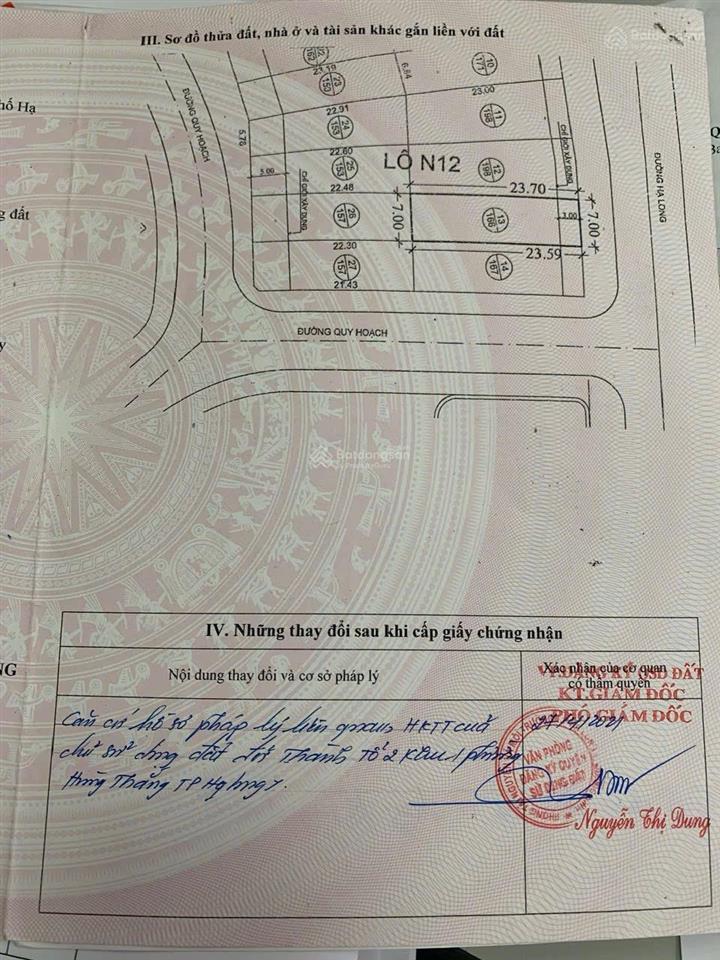 III. Sơ đồ thửa đất, nhà ở và tài sản khác gắn liền với đất
hố Hạ
g đất
y
NG
ĐƯỜNG QUY HOẠCH
5.78
5.00
CHỈ GIỚI XÂY DỰNG
22
162
23.19
23
150
22.91
24
153
22.60
25
153
22.48
26
157
22.30
27
157
21.43
6.84
10
171
23.00
11
168
LÔ N12
12
168
23.70
7.00
13
166
3.00
7.00
23.59
14
167
CHỈ GIỚI XÂY DỰNG
ĐƯỜNG HẠ LONG
ĐƯỜNG QUY HOẠCH
Batdongsan
IV. Những thay đổi sau khi cấp giấy chứng nhận
Nội dung thay đổi và cơ sở pháp lý
Xác nhận của cơ quan
có thẩm quyền
VP ĐĂNG KÝ QSD ĐẤT
KT.GIÁM ĐỐC
PHÓ GIÁM ĐỐC
Căn cứ hồ sơ pháp lý liên quan HKTT của
chủ sử dụng đất đổi thành Tổ 2 Khu 1 phường
Hùng Thắng TP Hạ long
VĂN PHÒNG
ĐĂNG KÝ QUYỀN
SỬ DỤNG ĐẤT
Nguyễn Thị Dung